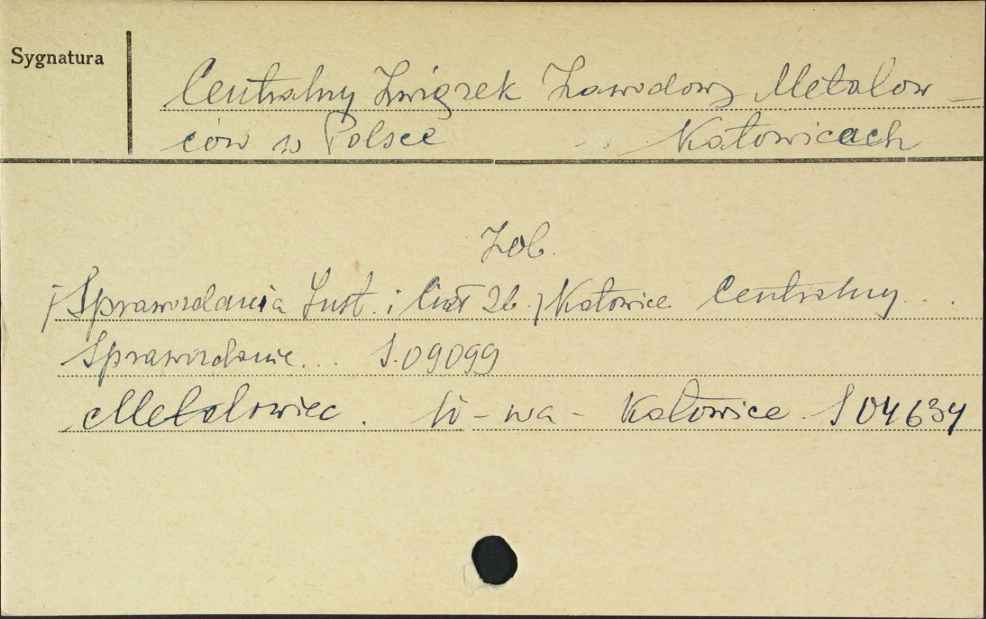 Sygnatura
Centralny Związek Zawodowy Metalow-
ców w Polsce Katowicach
Zob.
/Sprawozdania Inst. i Ciał Zb./ Katowice Centralny...
Sprawozdanie... S.09099
Metalowiec. W-wa - Katowice S 04634